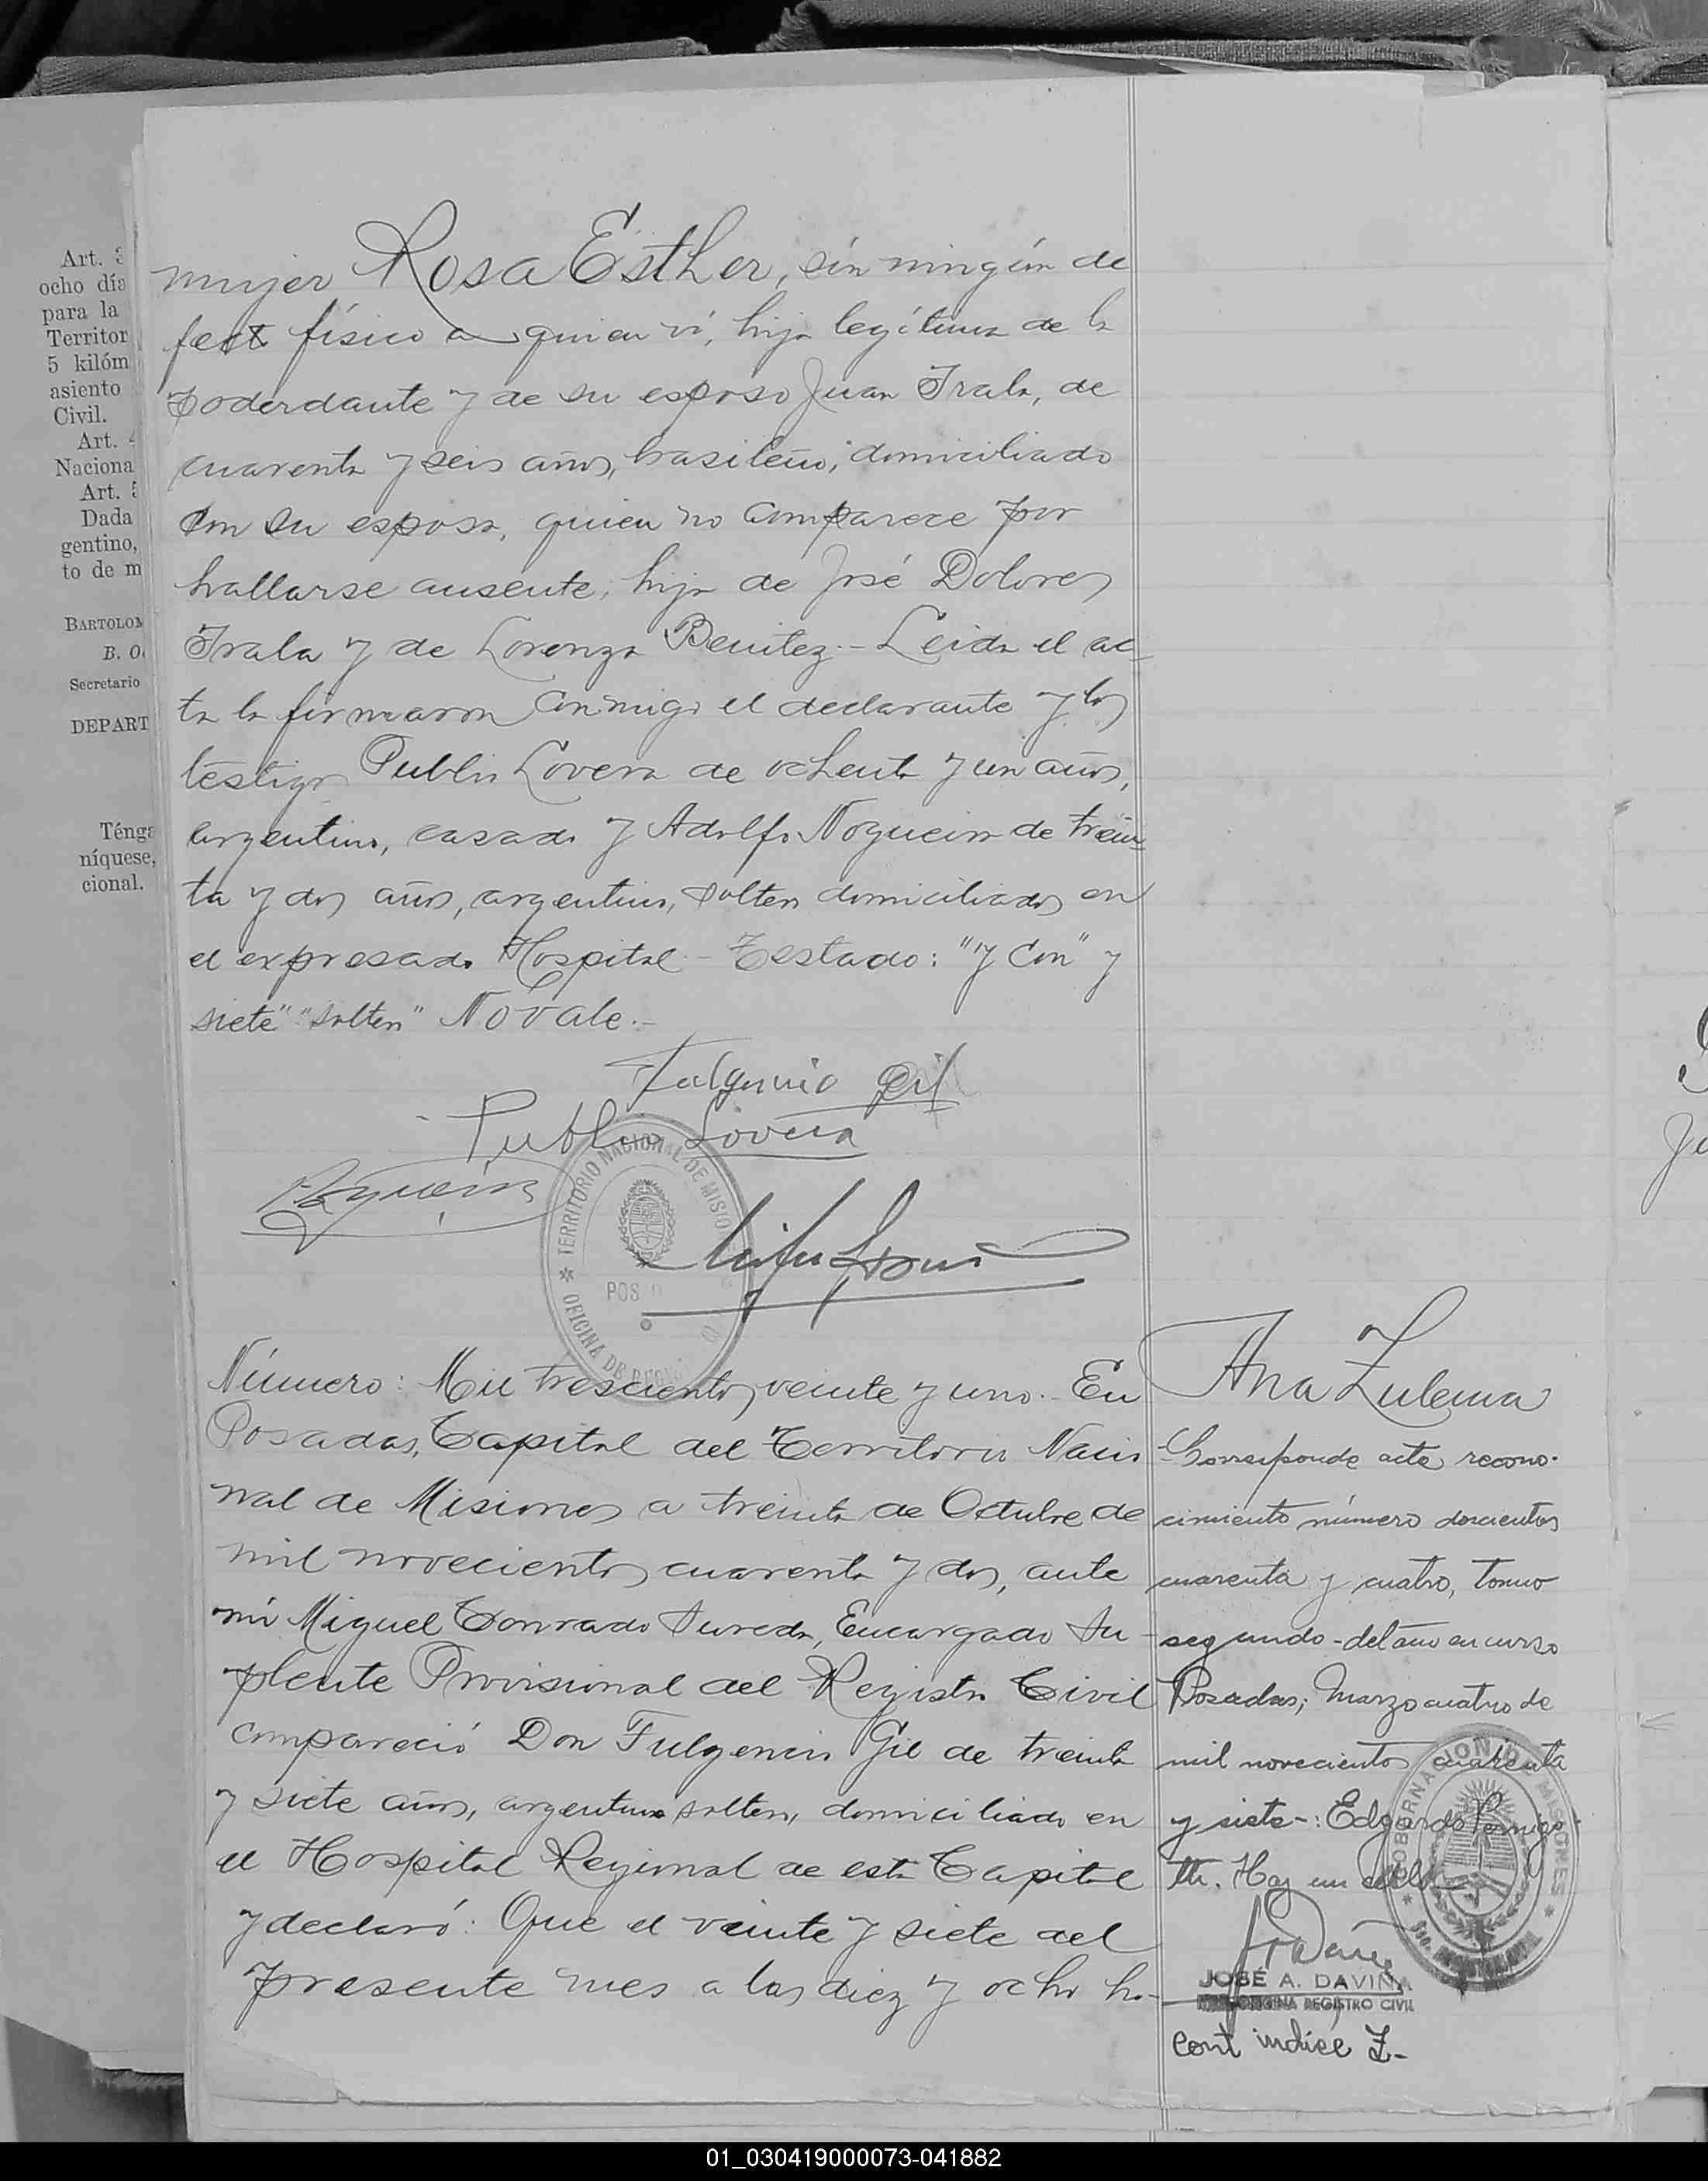 Art. 3
ocho día
para la
Territor
5 kilóm
asiento
Civil.
Art. 4
Naciona
Art. 5
Dada
gentino,
to de m
BARTOLOM
B. O
Secretario
DEPART
Ténga
níquese,
cional.
mujer Rosa Esther, sin ningún de
fecto físico a quien ví, hija legítima de la
poderdante y de su esposo Juan Irala, de
cuarenta y seis años, brasileño, domiciliado
con su esposa, quien no comparece por
hallarse ausente, hijo de José Dolores
Irala y de Lorenza Benitez.- Leida el ac-
ta la firmaron conmigo el declarante y los
testigos Publio Lovera de ochenta y un años,
argentino, casado y Adolfo Nogueira de trein-
ta y dos años, argentino, soltero domiciliados en
el expresado Hospital - Testado: "y con" y
siete" "soltero" No vale.-
Fulgencio Gil
Publio Lovera
Nogueira
TERRITORIO NACIONAL DE MISIO
POS
OFICINA DE
Número: Mil trescientos veinte y uno.- En
Posadas, Capital del Territorio Nacio
nal de Misiones a treinta de Octubre de
mil novecientos cuarenta y dos, ante
mí Miguel Conrado Sureda, Encargado Su-
plente Provisional del Registro Civil
compareció Don Fulgencio Gil de treinta
y siete años, argentino soltero, domiciliado en
el Hospital Regional de esta Capital
y declaró: Que el veinte y siete del
presente mes a las diez y ocho ho-
Ana Zulema
Corresponde acta recono-
cimiento número doscientos
cuarenta y cuatro, tomo
segundo - del año en curso
Posadas, Marzo cuatro de
mil novecientos cuarenta
y siete-: Edgardo Pernigo
tti. Hay un sello
GOBERNACION DE MISIONES
JOSÉ A. DAVIÑA
OFICINA REGISTRO CIVIL
Cont indice Z-
01_030419000073-041882